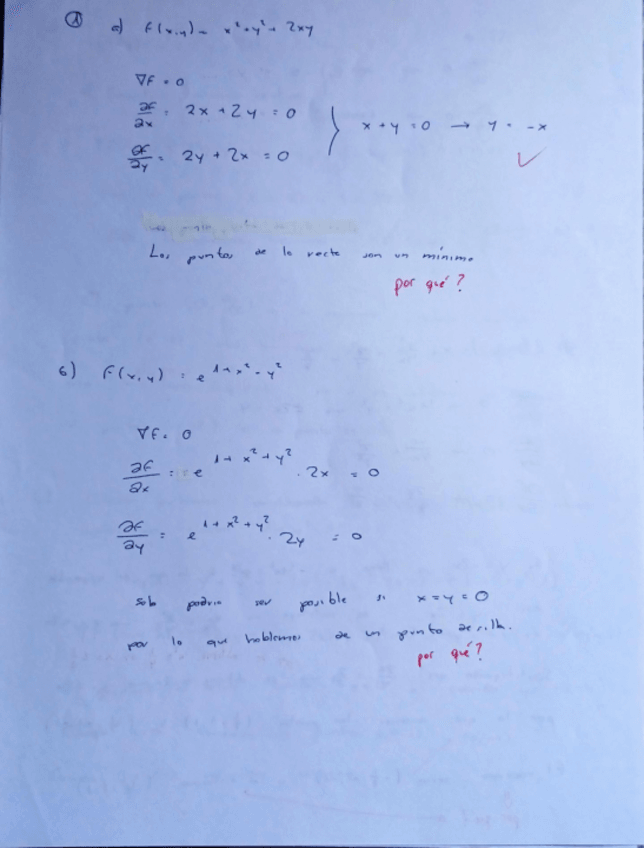 ① a) f(x,y) = x² + y² + 2xy
∇f = 0
∂f/∂x = 2x + 2y = 0
} x + y = 0 → y = -x
∂f/∂y = 2y + 2x = 0
✓
Los puntos de la recta son un mínimo
por qué?
b) f(x,y) = e^(1+x²-y²)
∇f = 0
∂f/∂x = e^(1+x²+y²) · 2x = 0
∂f/∂y = e^(1+x²+y²) · 2y = 0
solo podría ser posible si x = y = 0
por lo que hablamos de un punto de silla.
por qué?